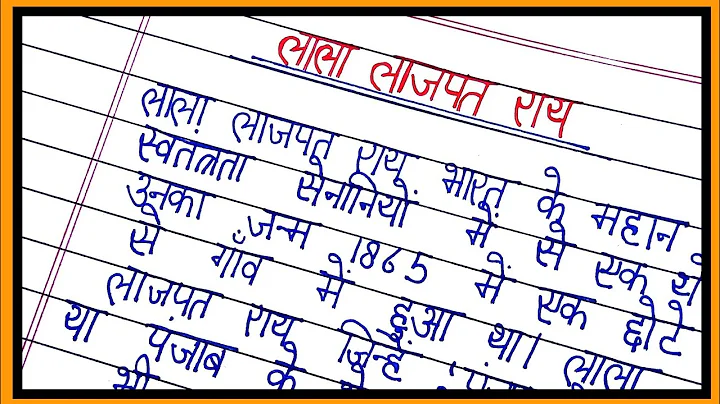 लाला लाजपत राय
लाला लाजपत राय भारत के महान
स्वतंत्रता सेनानियों में से एक थे
उनका जन्म 1865 में एक छोटे
से गाँव में हुआ था। लाला
लाजपत राय जिन्हें
या पंजाब के